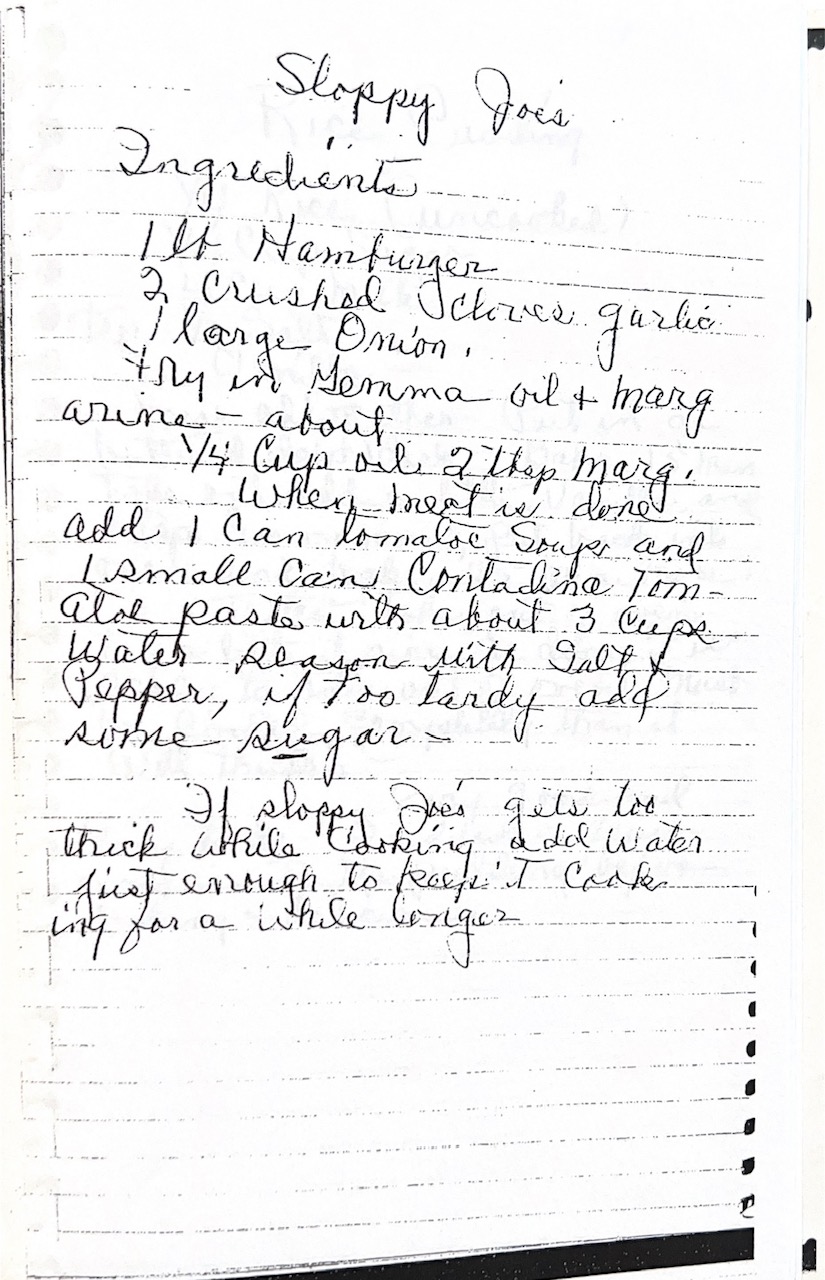 Sloppy Joes
Ingredients
1 lb Hamburger
2 Crushed cloves garlic
1 large Onion.
Fry in Gemma oil + marg
arine - about
1/4 Cup oil 2 tbsp marg.
When meat is done
add 1 Can tomatoe Soup and
1 small Can Contadina Tom-
atoe paste with about 3 Cups
Water season with Salt &
Pepper, if Too tardy add
some sugar -
If sloppy Joes gets too
thick while Cooking add Water
just enough to keep iT Cook
ing for a while longer